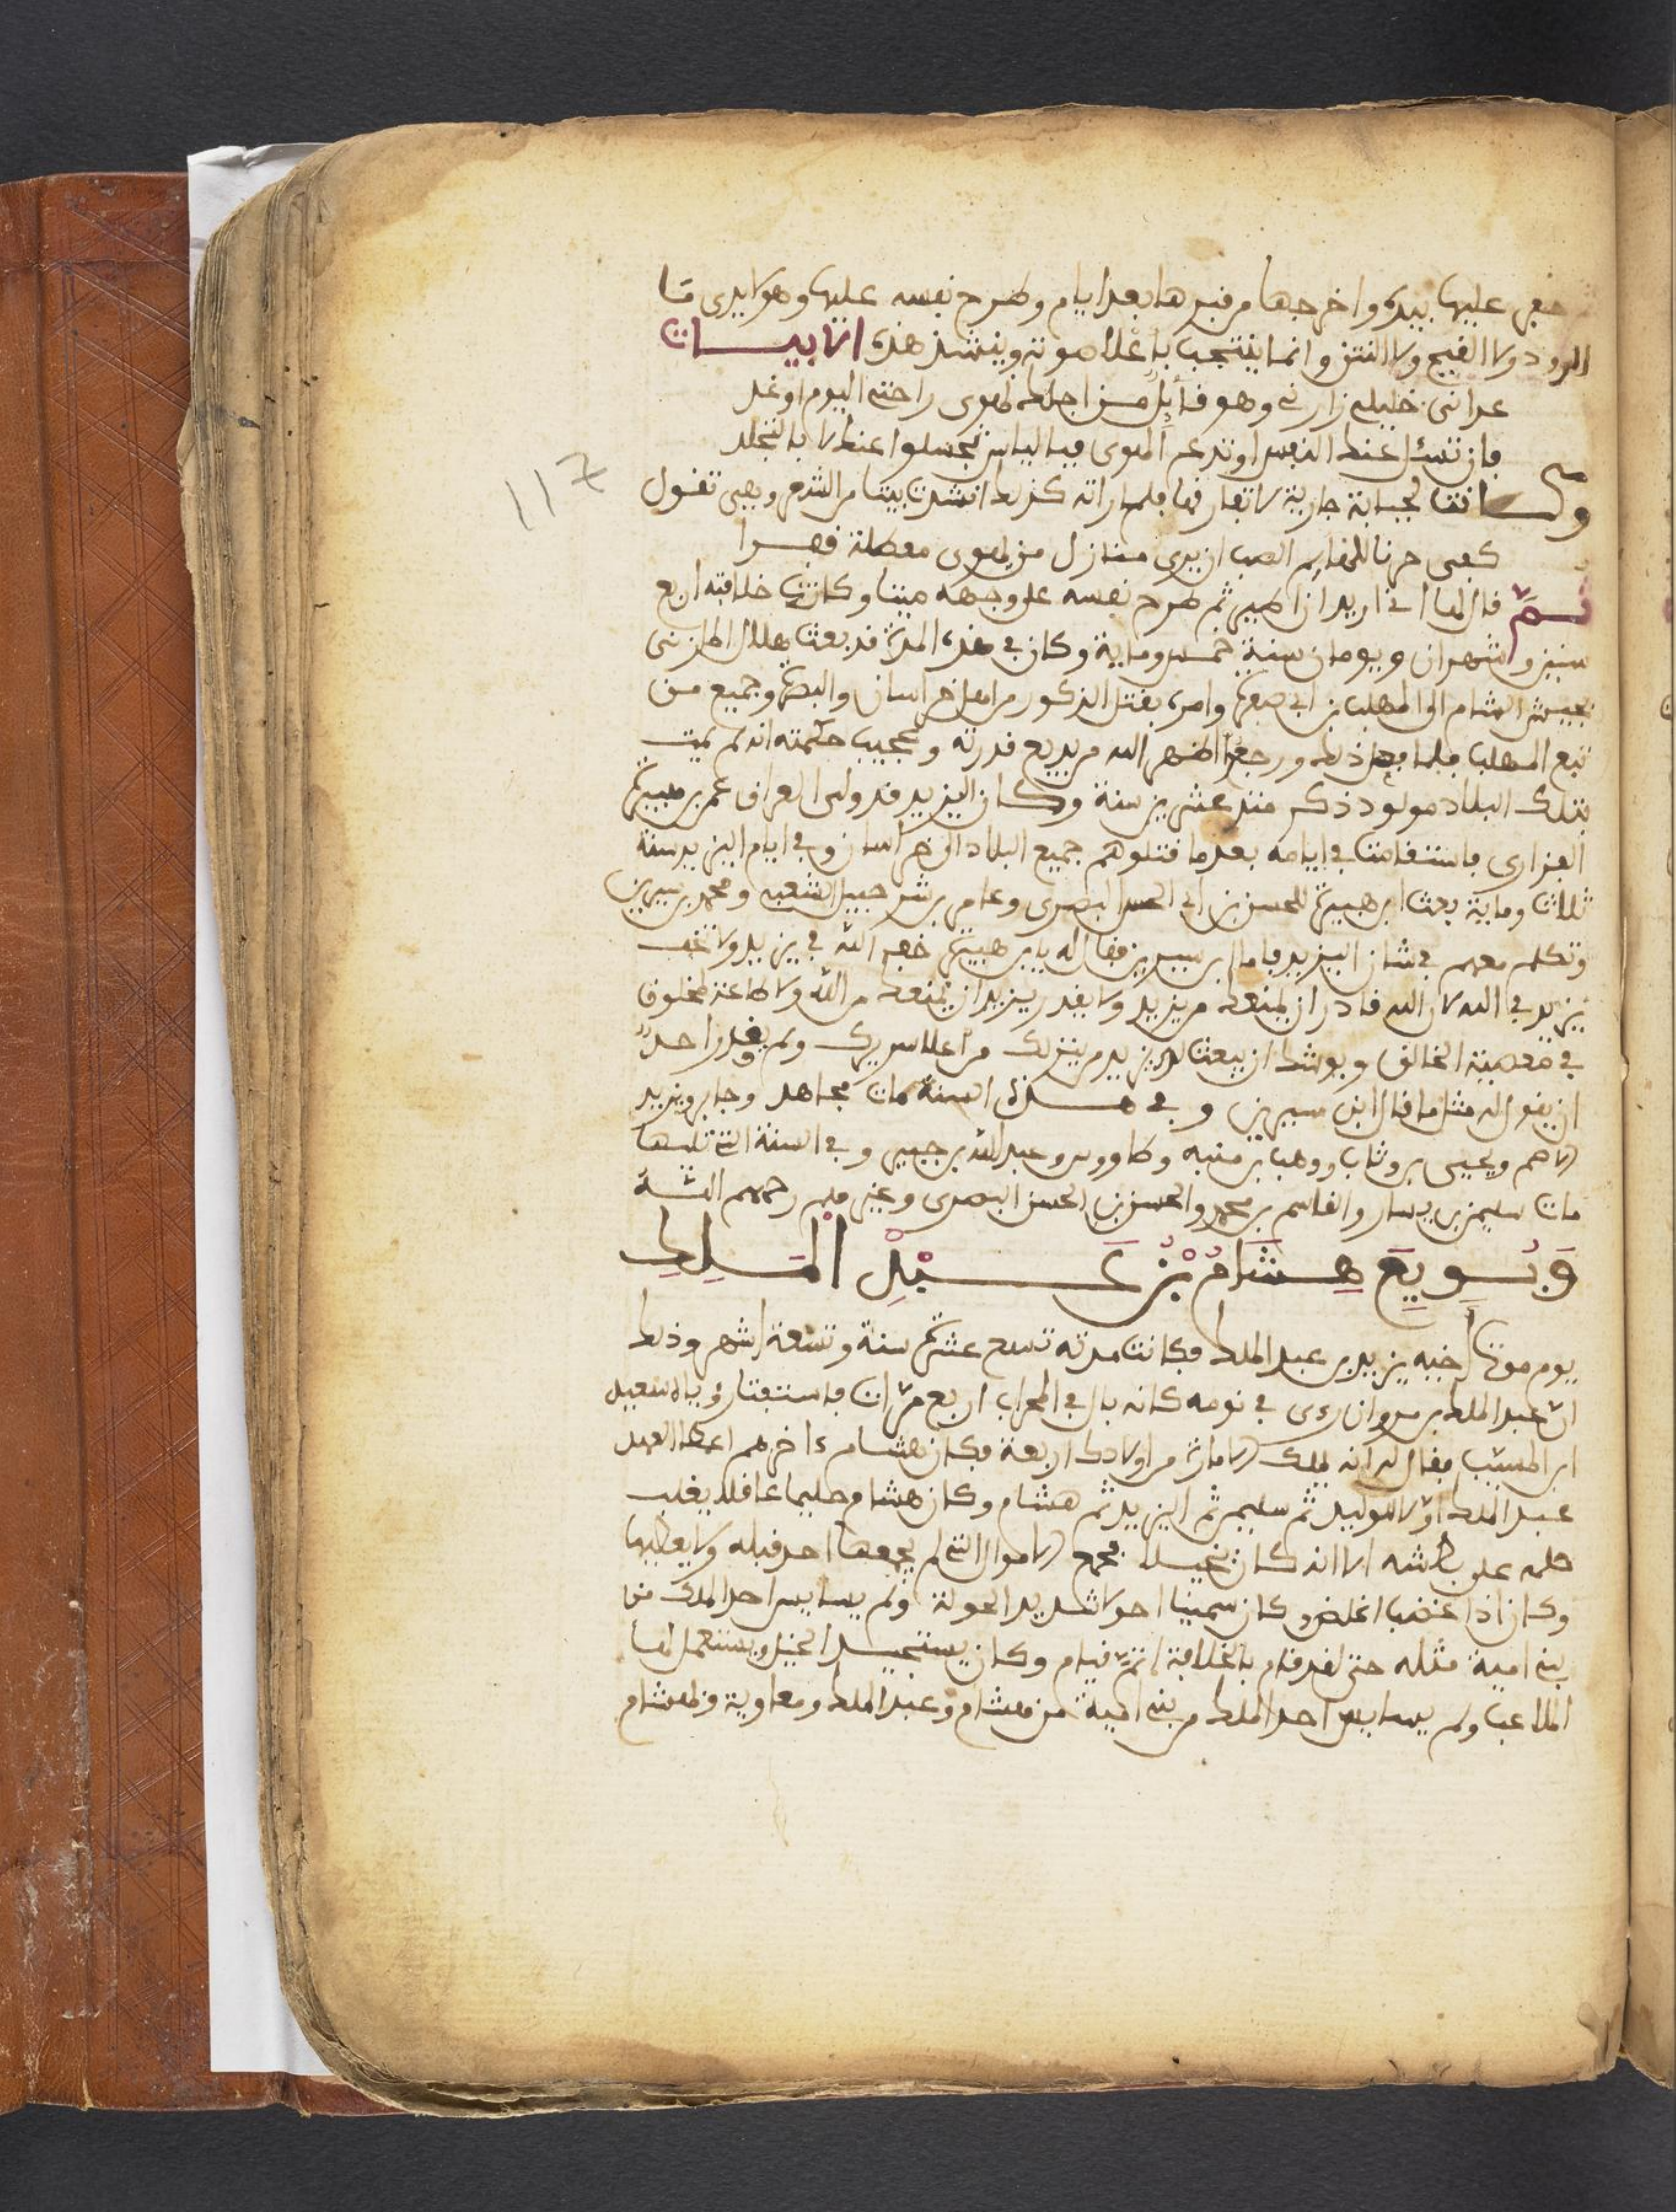 حفر عليها بيده واخرجها من قبرها بعد ايام وطرح نفسه عليها وهو لا يرى مـا
الدود ولا القيح ولا النتن وانما ينتحب بأعلا صوته وينشد هذه الابيـــات
عدانى خليلى زارنى وهو قائل من اجلك لهوى راحتى اليوم او غد
فان تسل عنك النفس او تدع الهوى فباليأس تسلوا عنك لا بالتجلد
وكـــانت لحبابة جارية لا تفارقها فلما راته كذلك انشدت بيتا من الشعر وهي تقول
كفى حزنا للهايم الصب ان يرى منازل من يهوى معطلة قفـــرا
ثـــمّ قال لها انى اريد ان اطير ثم طرح نفسه على وجهه ميتا وكانت خلافته اربع
سنين وشهران ويومان سنة خمس ومایة وكان في هذه المدة قد بعث هلال المازنى
بجيش الشام الى المهلب بن ابى صفرة وامره بقتل الذكور من اهل خراسان والبصرة وجميع من
تبع المهلب فلما فعل ذلك ورجع اظهر الله من بديع قدرته وعجيب حكمته انه لم يمت
بتلك البلاد مولود ذكر منذ عشرين سنة وكــان اليزيد قد ولى العراق عمر بن هبيرة
الفزارى فاستقامت في ايامه بعد ما قتلوهم جميع البلاد الى خراسان وفي ايام اليزيد سنة
ثلاث وماية بعث ابن هبيرة للحسن بن ابى الحسن البصرى وعامر بن شرحبيل الشعبى ومحمد بن سيرين
وتكلم معهم في شان اليزيد فاما ابن سيرين فقال له يا ابن هبيرة خف الله في يزيد ولا تخف
يزيد في الله لان الله قادر ان يمنعك من يزيد ولا يقدر يزيد ان يمنعك من الله ولا طاعة لمخلوق
في معصية الخالق ويوشك ان يبعث لك يزيد من ينزلك من أعلا سريرك ولم يقدر احدٌ
ان يقول له مثل ما قال ابن سيرين وفي هـــذه السنة مات مجاهد وجابر ويزيد
الاصم ويحيى بن وثاب ووهب بن منبه وطاووس وعبد الله بن جبير وفي السنة التى تليها
مات سليمن بن يسار والقاسم بن محمد والحسن بن الحسن البصرى وغيرهم رحمهم اللــه
وَبُـــويِعَ هِـــشَامُ بْنُ عَـــبْدِ الْمَـــلِكِ
يوم موت أخيه يزيد بن عبد الملك فكانت مدته تسع عشرة سنة وتسعة اشهر وذلك
انّ عبد الملك بن مروان رءى في نومه كانه بال في المحراب اربع مرّات فاستفتا رؤياه سعيد
ابن المسيّب فقال له انه يملك الامارة من اولادك اربعة فكان هشام ءاخرهم اعطا العهد
عبد الملك اوّلا للوليد ثم سليمن ثم اليزيد ثم هشام وكان هشام حليما عاقلا يغلب
حلمه على بطشه الا انه كان بخيـــلا فجمع الاموال التى لم يجمعها احد قبله ولا يعطيها
وكان اذا غضب اغلض وكان سمينا احولا شديد الحولة ولم يسايس احد الملك من
بنى امية مثله حتى لقد قام بالخلافة اتمّ قيام وكان يستجيــد الخيل ويستعمل لها
الملاعب ولم يسايس احد الملك من بنى امية من هشام وعبد الملك ومعاوية ولهشام
117